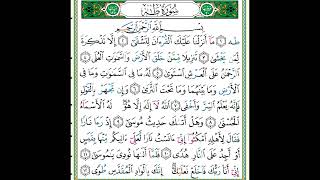 سُورَةُ طه
بِسْمِ اللَّهِ الرَّحْمَٰنِ الرَّحِيمِ
طه ١ مَا أَنزَلْنَا عَلَيْكَ الْقُرْءَانَ لِتَشْقَىٰ ٢ إِلَّا تَذْكِرَةً
لِّمَن يَخْشَىٰ ٣ تَنزِيلًا مِّمَّنْ خَلَقَ الْأَرْضَ وَالسَّمَٰوَٰتِ الْعُلَى ٤
الرَّحْمَٰنُ عَلَى الْعَرْشِ اسْتَوَىٰ ٥ لَهُ مَا فِي السَّمَٰوَٰتِ وَمَا فِي
الْأَرْضِ وَمَا بَيْنَهُمَا وَمَا تَحْتَ الثَّرَىٰ ٦ وَإِن تَجْهَرْ بِالْقَوْلِ
فَإِنَّهُ يَعْلَمُ السِّرَّ وَأَخْفَى ٧ اللَّهُ لَا إِلَٰهَ إِلَّا هُوَ لَهُ الْأَسْمَاءُ
الْحُسْنَىٰ ٨ وَهَلْ أَتَىٰكَ حَدِيثُ مُوسَىٰ ٩ إِذْ رَءَا نَارًا
فَقَالَ لِأَهْلِهِ امْكُثُوا إِنِّي ءَانَسْتُ نَارًا لَّعَلِّي ءَاتِيكُم مِّنْهَا بِقَبَسٍ
أَوْ أَجِدُ عَلَى النَّارِ هُدًى ١٠ فَلَمَّا أَتَىٰهَا نُودِيَ يَٰمُوسَىٰ ١١
إِنِّي أَنَا رَبُّكَ فَاخْلَعْ نَعْلَيْكَ إِنَّكَ بِالْوَادِ الْمُقَدَّسِ طُوًى ١٢